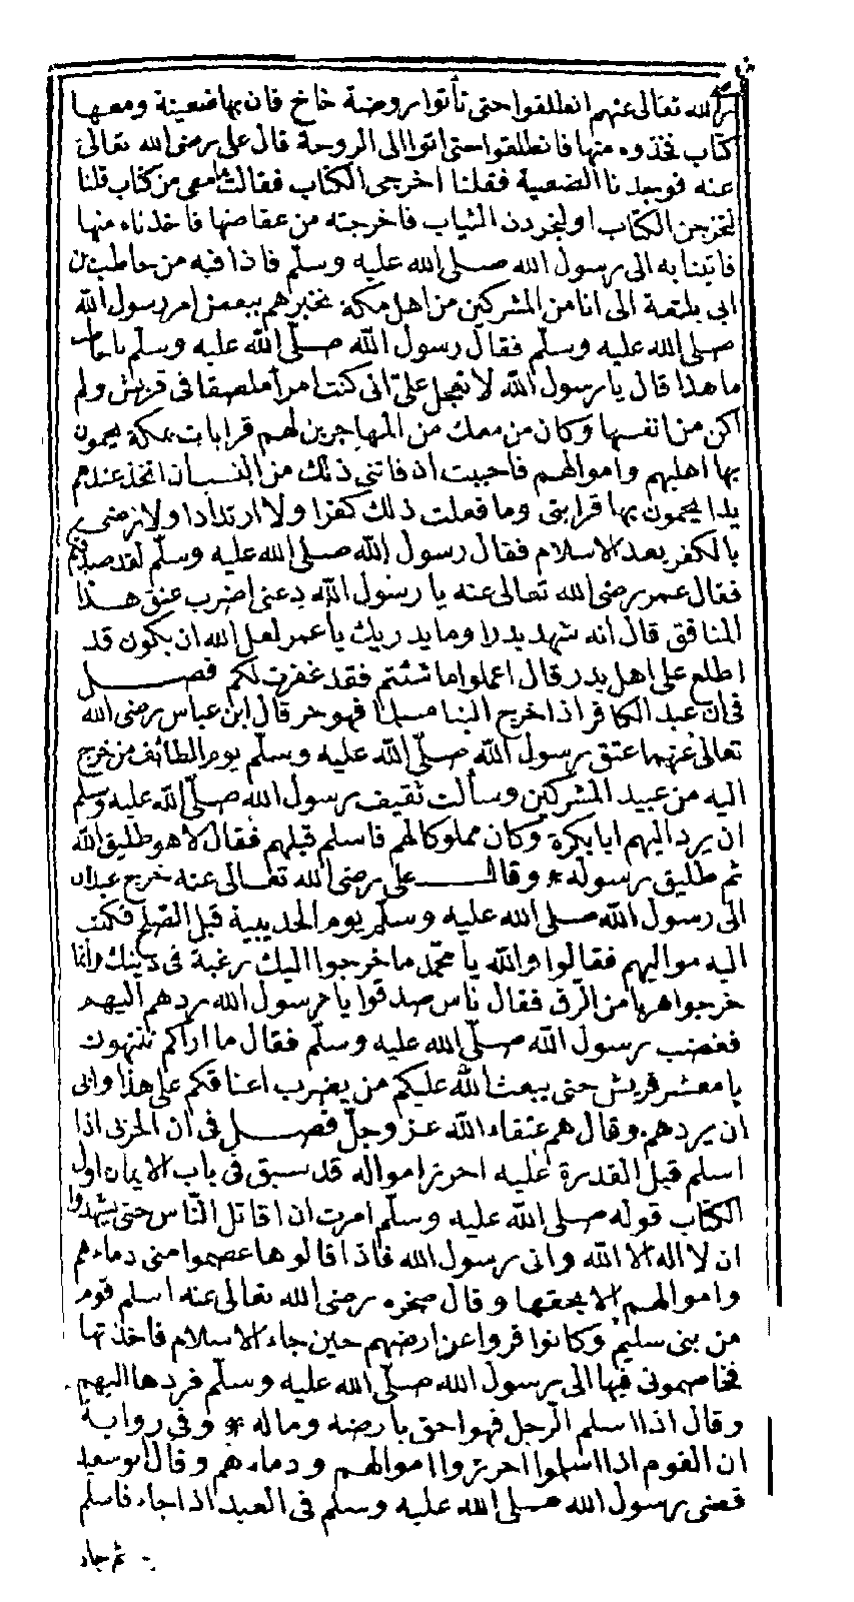 الله تعالى عنهم انطلقوا حتى تأتوا روضة خاخ فان بها ضعينة ومعها
كتاب فخذوه منها فانطلقوا حتى اتوا الى الروحة قال على رضى الله تعالى
عنه فوجدنا الضعينة فقلنا اخرجى الكتاب فقالت ما معى من كتاب قلنا
لتخرجن الكتاب او لنجردن الثياب فاخرجته من عقاصها فاخذناه منها
فاتينا به الى رسول الله صلى الله عليه وسلم فاذا فيه من حاطب بن
ابى بلتعة الى اناس من المشركين من اهل مكة يخبرهم ببعض امر رسول الله
صلى الله عليه وسلم فقال رسول الله صلى الله عليه وسلم يا حاطب
ما هذا قال يا رسول الله لا تعجل على انى كنت امرأ ملصقا فى قريش ولم
اكن من انفسها وكان من معك من المهاجرين لهم قرابات بمكة يحمون
بها اهليهم واموالهم فاحببت اذ فاتنى ذلك من النسب ان اتخذ عندهم
يدا يحمون بها قرابتى وما فعلت ذلك كفرا ولا ارتدادا ولا نرضى
بالكفر بعد الاسلام فقال رسول الله صلى الله عليه وسلم لقد صدقكم
فقال عمر رضى الله تعالى عنه يا رسول الله دعنى اضرب عنق هذا
المنافق قال انه شهد بدرا وما يدريك يا عمر لعل الله ان يكون قد
اطلع على اهل بدر قال اعملوا ما شئتم فقد غفرت لكم فصل
فى ان عبد الكافر اذا خرج الينا مسلما فهو حر قال ابن عباس رضى الله
تعالى عنهما عتق رسول الله صلى الله عليه وسلم يوم الطائف من خرج
اليه من عبيد المشركين وسألت ثقيف رسول الله صلى الله عليه وسلم
ان يرد اليهم ابا بكرة وكان مملوكا لهم فاسلم قبلهم فقال لا هو طليق الله
ثم طليق رسوله * وقال على رضى الله تعالى عنه خرج عبدان
الى رسول الله صلى الله عليه وسلم يوم الحديبية قبل الصلح فكتب
اليه مواليهم فقالوا والله يا محمد ما خرجوا اليك رغبة فى دينك وانما
خرجوا هربا من الرق فقال ناس صدقوا يا رسول الله ردهم اليهم
فغضب رسول الله صلى الله عليه وسلم فقال ما اراكم تنتهون
يا معشر قريش حتى يبعث الله عليكم من يضرب اعناقكم على هذا وابى
ان يردهم وقال هم عتقاء الله عز وجل فصل فى ان الحربى اذا
اسلم قبل القدرة عليه احرز امواله قد سبق فى باب الايمان اول
الكتاب قوله صلى الله عليه وسلم امرت ان اقاتل الناس حتى يشهدوا
ان لا اله الا الله وانى رسول الله فاذا قالوها عصموا منى دماءهم
واموالهم الا بحقها وقال صخره رضى الله تعالى عنه اسلم قوم
من بنى سليم وكانوا فروا عن ارضهم حين جاء الاسلام فاخذتها
فخاصمونى فيها الى رسول الله صلى الله عليه وسلم فردها اليهم
وقال اذا اسلم الرجل فهو احق بارضه وماله * وفى رواية
ان القوم اذا اسلموا احرزوا اموالهم ودماءهم وقال ابو سعيد
قضى رسول الله صلى الله عليه وسلم فى العبد اذا جاء فاسلم
ثم جاء